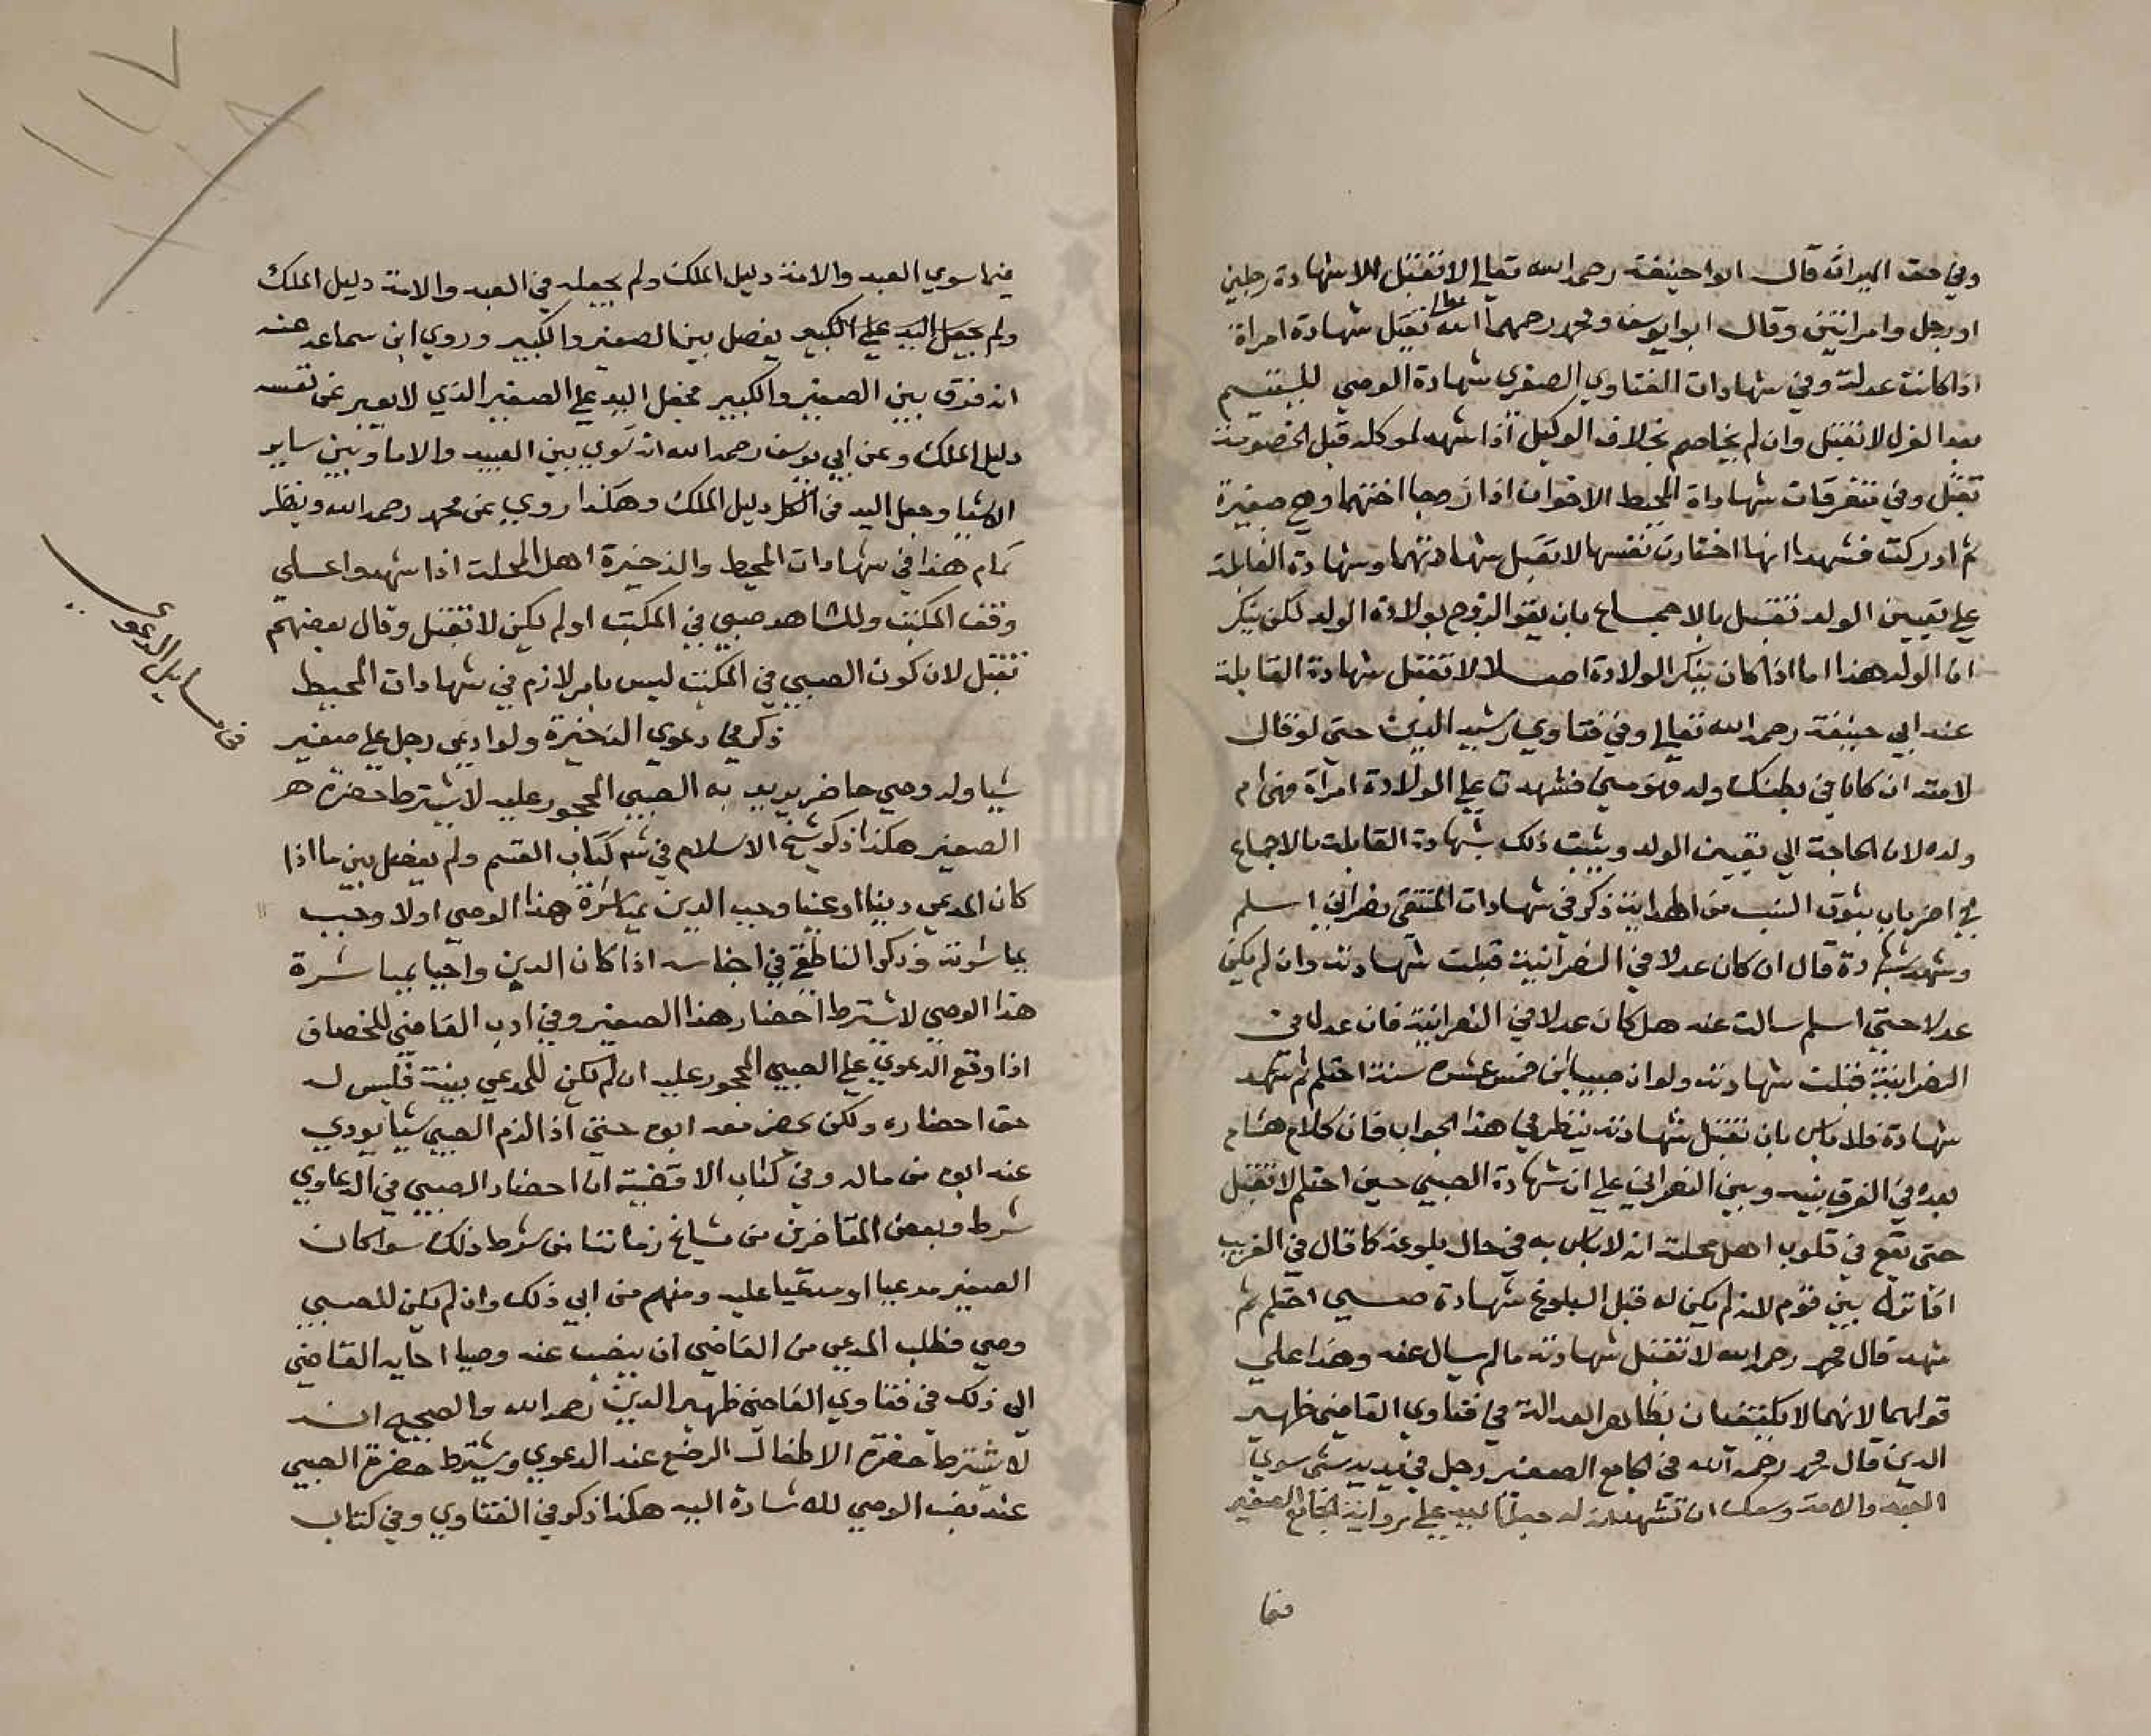 وفي حق الميراث قال ابوا حنيفة رحمه الله تعالى لا تقبل الا شهادة رجلين
او رجل وامراتين وقال ابوا يوسف ومحمد رحمهما الله تعالى تقبل شهادة امراة
اذا كانت عدلة وفي شهادات الفتاوي الصغرى شهادة الوصي لليتيم
بعد العزل لا تقبل وان لم يخاصم بخلاف الوكيل اذا شهد لموكله قبل الخصومة
تقبل وفي متفرقات شهاداة المحيط الاخوان اذا زوجا اختهما وهي صغيرة
ثم ادركت فشهدا انها اختارت نفسها لا تقبل شهادتهما وشهادة القابلة
علي تعيين الولد تقبل بالاجماع بان يقر الزوج بولادة الولد لكن ينكر
ان الولد هذا اما اذا كان ينكر الولادة اصلا لا تقبل شهادة القابلة
عند ابي حنيفة رحمه الله تعالى وفي فتاوي رشيد الدين حتى لو قال
لامته ان كان في بطنك ولد فهو مني فشهدت علي الولادة امراة فهي ام
ولده لان الحاجة الي تعيين الولد ويثبت ذلك بشهادة القابلة بالاجماع
في اخر باب ثبوت النسب من الهداية ذكر في شهادات المنتقى نصراني اسلم
وشهد بشهادة قال ان كان عدلا في النصرانية قبلت شهادته وان لم يكن
عدلا حتى اسلم سالت عنه هل كان عدلا في النصرانية فان عدل في
النصرانية قبلت شهادته ولو ان صبيا ابن خمس عشرة سنة احتلم ثم شهد
شهادة فلا باس بان تقبل شهادته ينظر في هذا الجواب فان كلام هشام
بعده في الفرق بينه وبين النصراني علي ان شهادة الصبي حين احتلم لا تقبل
حتى يقع في قلوب اهل محلته انه لا باس به في حال بلوغه كما قال في الغريب
اذا نزل بين قوم لانه لم يكن له قبل البلوغ شهادة صبي احتلم ثم
شهد قال محمد رحمه الله لا تقبل شهادته ما لم يسال عنه وهذا علي
قولهما لانهما لا يكتفيان بظاهر العدالة في فتاوي القاضي ظهير
الدين قال محمد رحمه الله في الجامع الصغير رجل في يديه شي سوي
العبد والامة وسعك ان تشهد انه له جعل اليد علي رواية الجامع الصغير
فيما
فيما سوي العبد والامة دليل الملك ولم يجعله في العبد والامة دليل الملك
ولم يجعل اليد علي الكبير يفصل بين الصغير والكبير وروي ابن سماعه عنه
انه فرق بين الصغير والكبير فجعل اليد علي الصغير الذي لا يعبر عن نفسه
دليل الملك وعن ابي يوسف رحمه الله انه سوي بين العبيد والاما وبين ساير
الاشيا وجعل اليد في الكل دليل الملك وهكذا روي عن محمد رحمه الله وينظر
تمام هذا في شهادات المحيط والذخيرة اهل المحلة اذا شهدوا علي
وقف المكتب وللشاهد صبي في المكتب او لم يكن لا تقبل وقال بعضهم
تقبل لان كون الصبي في المكتب ليس بامر لازم في شهادات المحيط
ذكر في دعوي الذخيرة ولو ادعي رجل علي صغير
شيا وله وصي حاضر يريد به الصبي المحجور عليه لا يشترط حضرة هـ
الصغير هكذا ذكر شيخ الاسلام في شرح كتاب القسم ولم يفصل بين ما اذا
كان المدعي دينا او عينا وجب الدين بمباشرة هذا الوصي او لا وجب
بمباشرته وذكر الناطفي في اجناسه اذا كان الدين واجبا بمباشرة
هذا الوصي لا يشترط احضار هذا الصغير وفي ادب القاضي للخصاف
اذا وقع الدعوي علي الصبي المحجور عليه ان لم يكن للمدعي بينة فليس له
حق احضاره ولكن يحضر معه ابوه حتى اذا لزم الصبي شيا يودي
عنه ابوه من ماله وفي كتاب الاقضية ان احضار الصبي في الدعاوي
شرط وبعض المتاخرين من مشايخ زماننا من شرط ذلك سوا كان
الصغير مدعيا او مدعيا عليه ومنهم من ابي ذلك وان لم يكن للصبي
وصي فطلب المدعي من القاضي ان ينصب عنه وصيا اجابه القاضي
الي ذلك في فتاوي القاضي ظهير الدين رحمه الله والصحيح انه
لا يشترط حضرة الاطفال الرضع عند الدعوي ويشترط حضرة الصبي
عند نصب الوصي للاشارة اليه هكذا ذكر في الفتاوي وفي كتاب
في مسايل الدعوي
١١٧